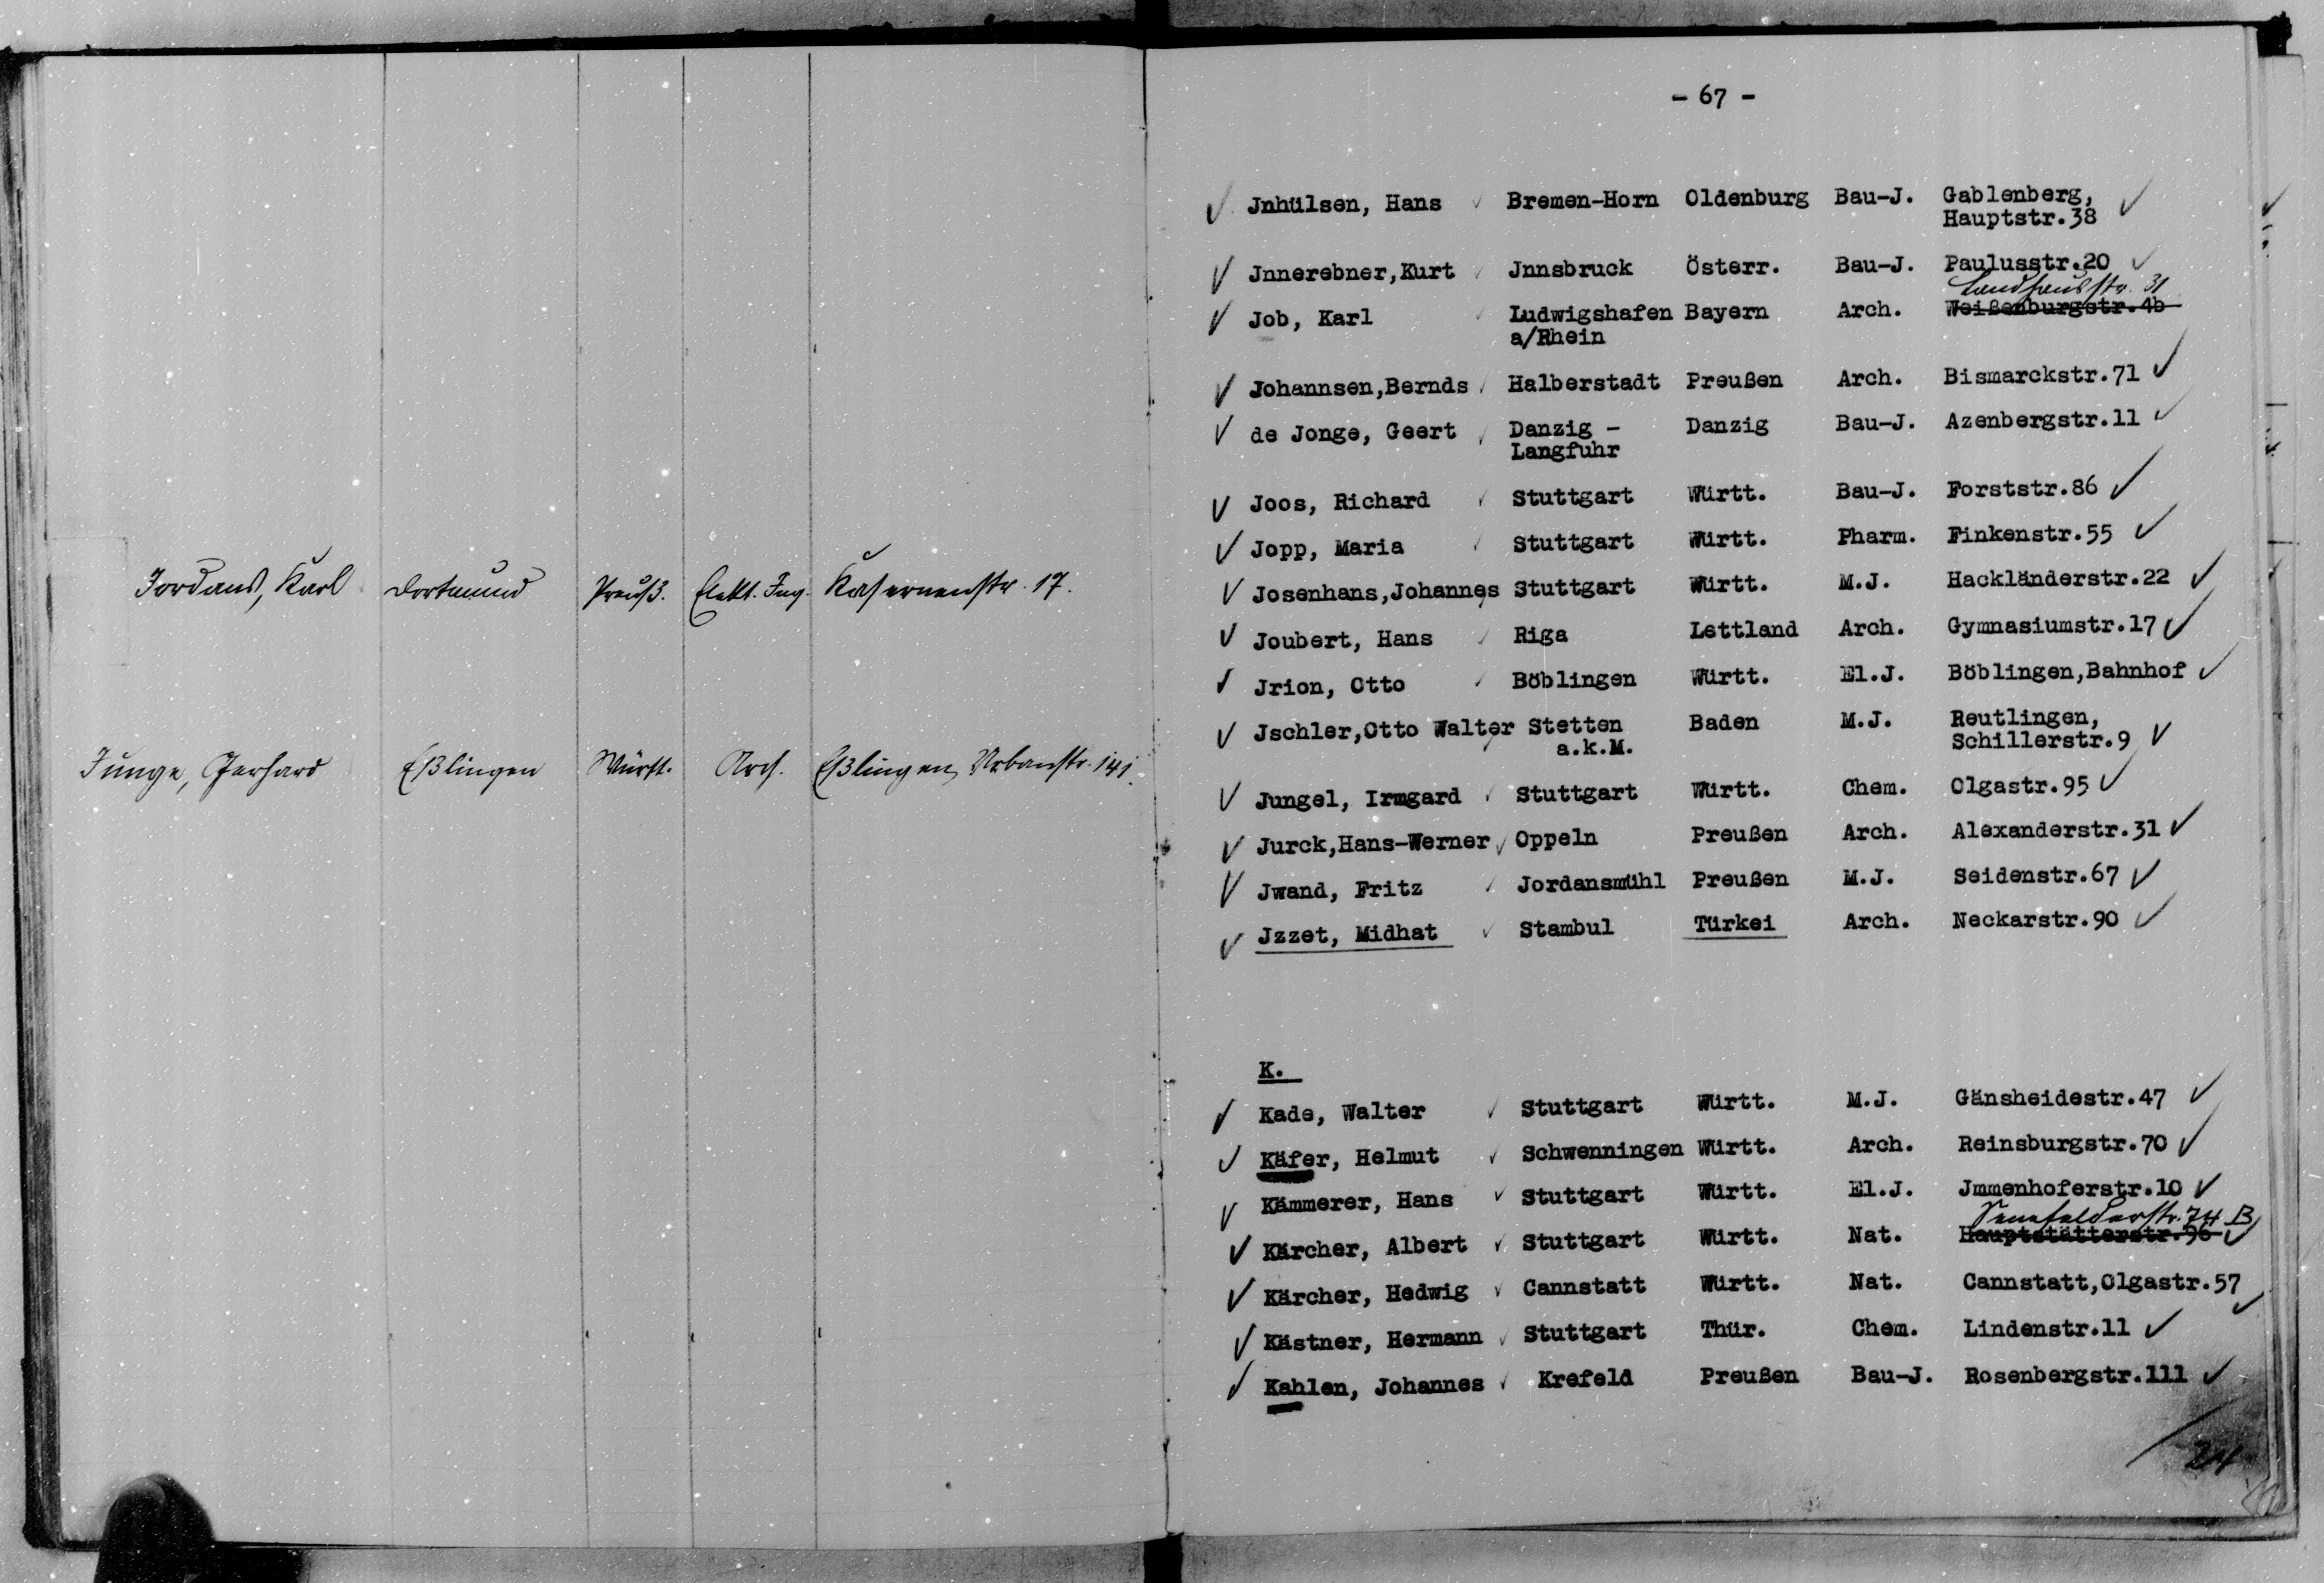 Jordans, Karl Dortmund Preuß. Elekt. Ing. Kasernenstr. 17.
Junge, Gerhard Eßlingen Württ. Arch. Eßlingen, Urbanstr. 141.
- 67 -
Jnhülsen, Hans Bremen-Horn Oldenburg Bau-J. Gablenberg,
Hauptstr.38
Jnnerebner,Kurt Jnnsbruck Österr. Bau-J. Paulusstr.20
Landhausstr. 31
Job, Karl Ludwigshafen Bayern Arch. Weißenburgstr.4b
a/Rhein
Johannsen,Bernds Halberstadt Preußen Arch. Bismarckstr.71
de Jonge, Geert Danzig - Danzig Bau-J. Azenbergstr.11
Langfuhr
Joos, Richard Stuttgart Württ. Bau-J. Forststr.86
Jopp, Maria Stuttgart Württ. Pharm. Finkenstr.55
Josenhans,Johannes Stuttgart Württ. M.J. Hackländerstr.22
Joubert, Hans Riga Lettland Arch. Gymnasiumstr.17
Jrion, Otto Böblingen Württ. El.J. Böblingen,Bahnhof
Jschler,Otto Walter Stetten Baden M.J. Reutlingen,
a.k.M. Schillerstr.9
Jungel, Irmgard Stuttgart Württ. Chem. Olgastr.95
Jurck,Hans-Werner Oppeln Preußen Arch. Alexanderstr.31
Jwand, Fritz Jordansmühl Preußen M.J. Seidenstr.67
Jzzet, Midhat Stambul Türkei Arch. Neckarstr.90
K.
Kade, Walter Stuttgart Württ. M.J. Gänsheidestr.47
Käfer, Helmut Schwenningen Württ. Arch. Reinsburgstr.70
Kämmerer, Hans Stuttgart Württ. El.J. Jmmenhoferstr.10
Senefelderstr. 74 B
Kärcher, Albert Stuttgart Württ. Nat. Hauptstätterstr.96
Kärcher, Hedwig Cannstatt Württ. Nat. Cannstatt,Olgastr.57
Kästner, Hermann Stuttgart Thür. Chem. Lindenstr.11
Kahlen, Johannes Krefeld Preußen Bau-J. Rosenbergstr.111